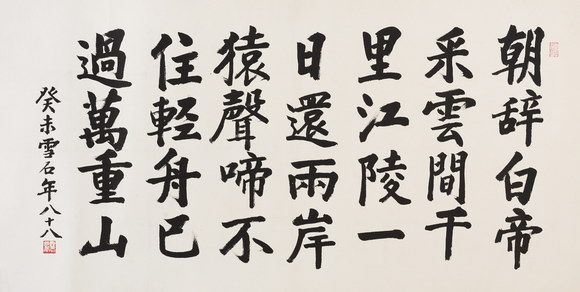 朝辞白帝
采雲間千
里江陵一
日還兩岸
猿聲啼不
住輕舟已
過萬重山
癸未雪石年八十八